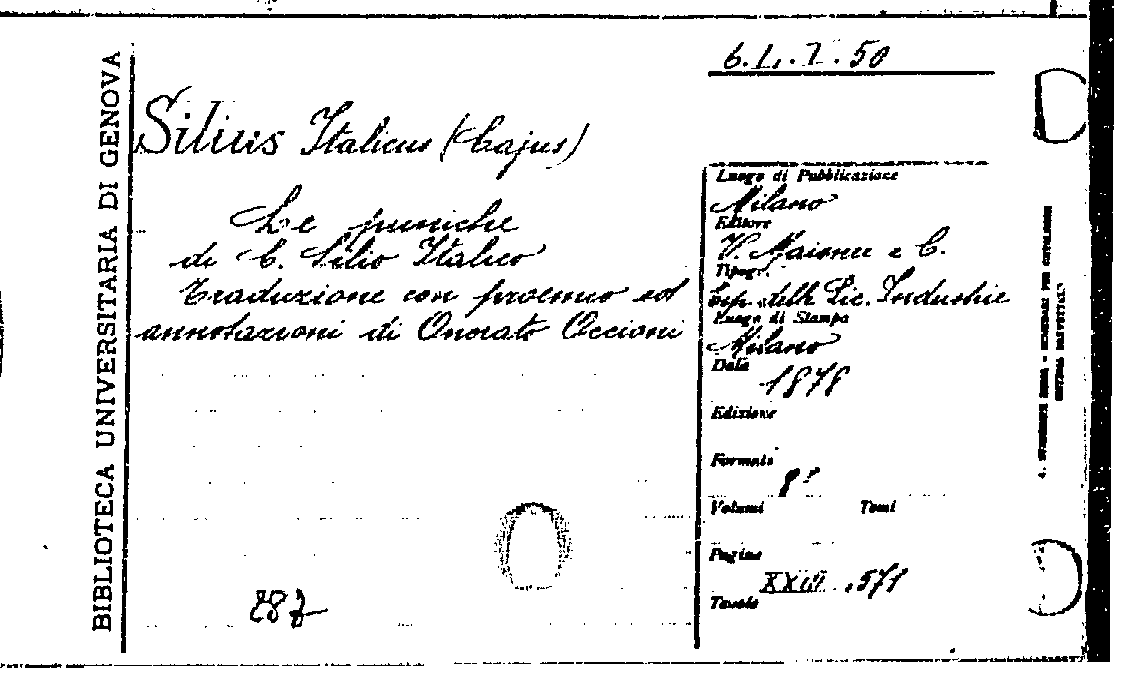 BIBLIOTECA UNIVERSITARIA DI GENOVA
6. L. 7. 50
Silius Italicus (Cajus)
Le puniche
di C. Silio Italico
Traduzione con proemio ed
annotazioni di Onorato Occioni
287
Luogo di Pubblicazione
Milano
Editore
V. Maisner e C.
Tipogr.
Tip. delle Lic. Industrie
Luogo di Stampa
Milano
Data
1878
Edizione
Formato
8°
Volumi Tomi
Pagine
571
Tavole